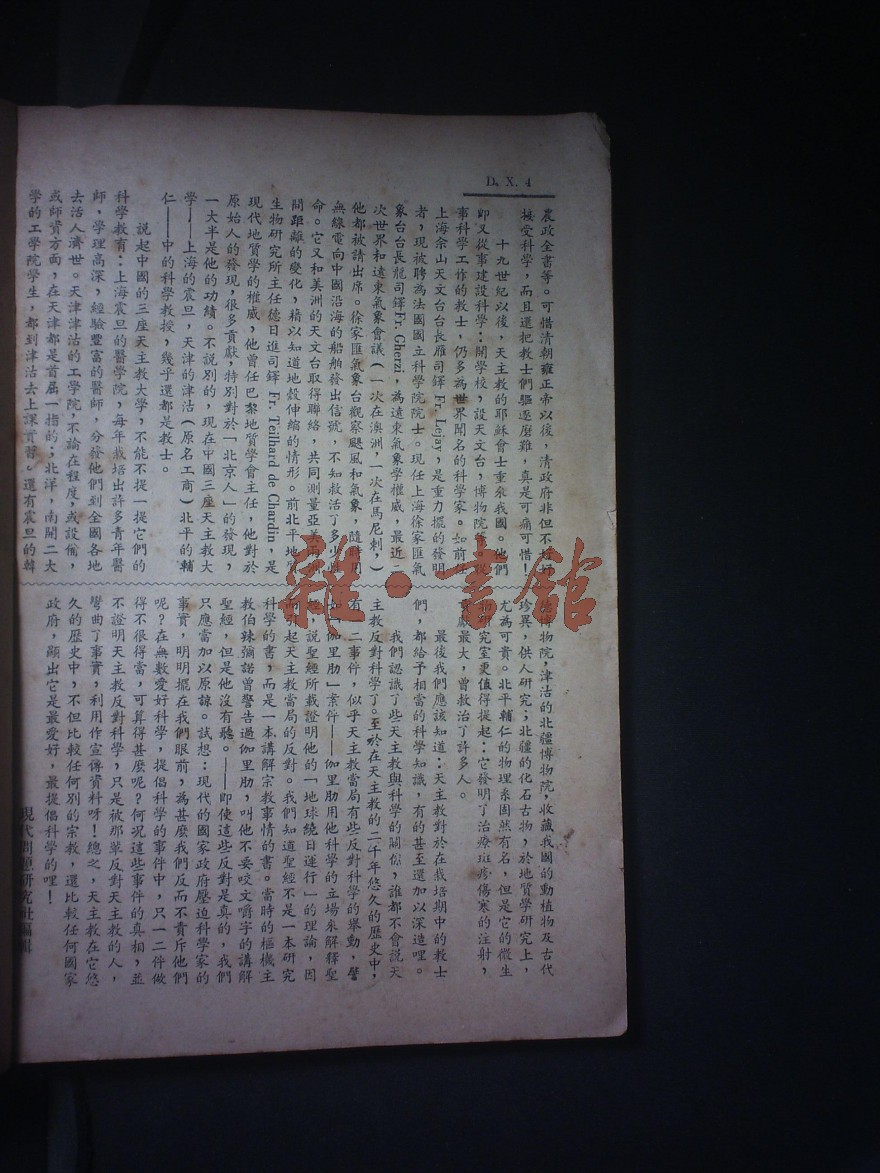 D. X. 4
農政全書等。可惜清朝雍正帝以後,清政府非但不
接受科學,而且還把教士們驅逐磨難,真是可痛可惜!
十九世紀以後,天主教的耶穌會士重來我國。他們
即又從事建設科學:開學校,設天文台,博物院
事科學工作的教士,仍多為世界聞名的科學家。如前任
上海佘山天文台台長雁司鐸 Fr. Lejay,是重力擺的發明
者,現被聘為法國國立科學院院士。現任上海徐家匯氣
象台台長龍司鐸Fr. Gherzi,為遠東氣象學權威,最近二
次世界和遠東氣象會議(一次在澳洲,一次在馬尼剌,)
他都被請出席。徐家匯氣象台觀察颶風和氣象,隨時用
無線電向中國沿海的船舶發出信號,不知救活了多少性
命。它又和美洲的天文台取得聯絡,共同測量亞美兩洲
間距離的變化,藉以知道地殼伸縮的情形。前北平地質
生物研究所主任德日進司鐸 Fr. Teilhard de Chardin,是
現代地質學的權威,他曾任巴黎地質學會主任,他對於
原始人的發現,很多貢獻,特別對於「北京人」的發現,
一大半是他的功績。不說別的,現在中國三座天主教大
學——上海的震旦,天津的津沽(原名工商)北平的輔
仁——中的科學教授,幾乎還都是教士。
說起中國的三座天主教大學,不能不提一提它們的
科學教育:上海震旦的醫學院,每年栽培出許多青年醫
師,學理高深,經驗豐富的醫師,分發他們到全國各地
去活人濟世。天津津沽的工學院,不論在程度或設備,
或師資方面,在天津都是首屈一指的;北洋,南開二大
學的工學院學生,都到津沽去上課實習。還有震旦的韓
德博物院,津沽的北疆博物院,收藏我國的動植物及古代
珍異,供人研究;北疆的化石古物,於地質學研究上,
尤為可貴。北平輔仁的物理系固然有名,但是它的微生
物研究室更值得提起:它發明了治療斑疹傷寒的注射,
貢獻最大,曾救治了許多人。
最後我們應該知道:天主教對於在栽培期中的教士
們,都給予相當的科學知識,有的甚至還加以深造哩。
我們認識了些天主教與科學的關係,誰都不會說天
主教反對科學了。至於在天主教的二千年悠久的歷史中,
有一二事件,似乎天主教當局有些反對科學的舉動,譬
如「伽里肋」案件——伽里肋用他科學的立場來解釋聖
經,說聖經所載證明他的「地球繞日運行」的理論,因
而引起天主教當局的反對。我們知道聖經不是一本研究
科學的書,而是一本講解宗教事情的書。當時的樞機主
教伯辣彌諾曾警告過伽里肋,叫他不要咬文嚼字的講解
聖經,但是他沒有聽。——即使這些反對是真的,我們
只應當加以原諒。試想:現代的國家政府壓迫科學家的
事實,明明擺在我們眼前,為甚麼我們反而不責斥他們
呢?在無數愛好科學,提倡科學的事件中,只一二件做
得不很得當,可算得甚麼呢?何況這些事件的真相,並
不證明天主教反對科學,只是被那輩反對天主教的人,
彎曲了事實,利用作宣傳資料呀!總之,天主教在它悠
久的歷史中,不但比較任何別的宗教,還比較任何國家
政府,顯出它是最愛好,最提倡科學的哩!
現代問題研究社編輯
雜·書館